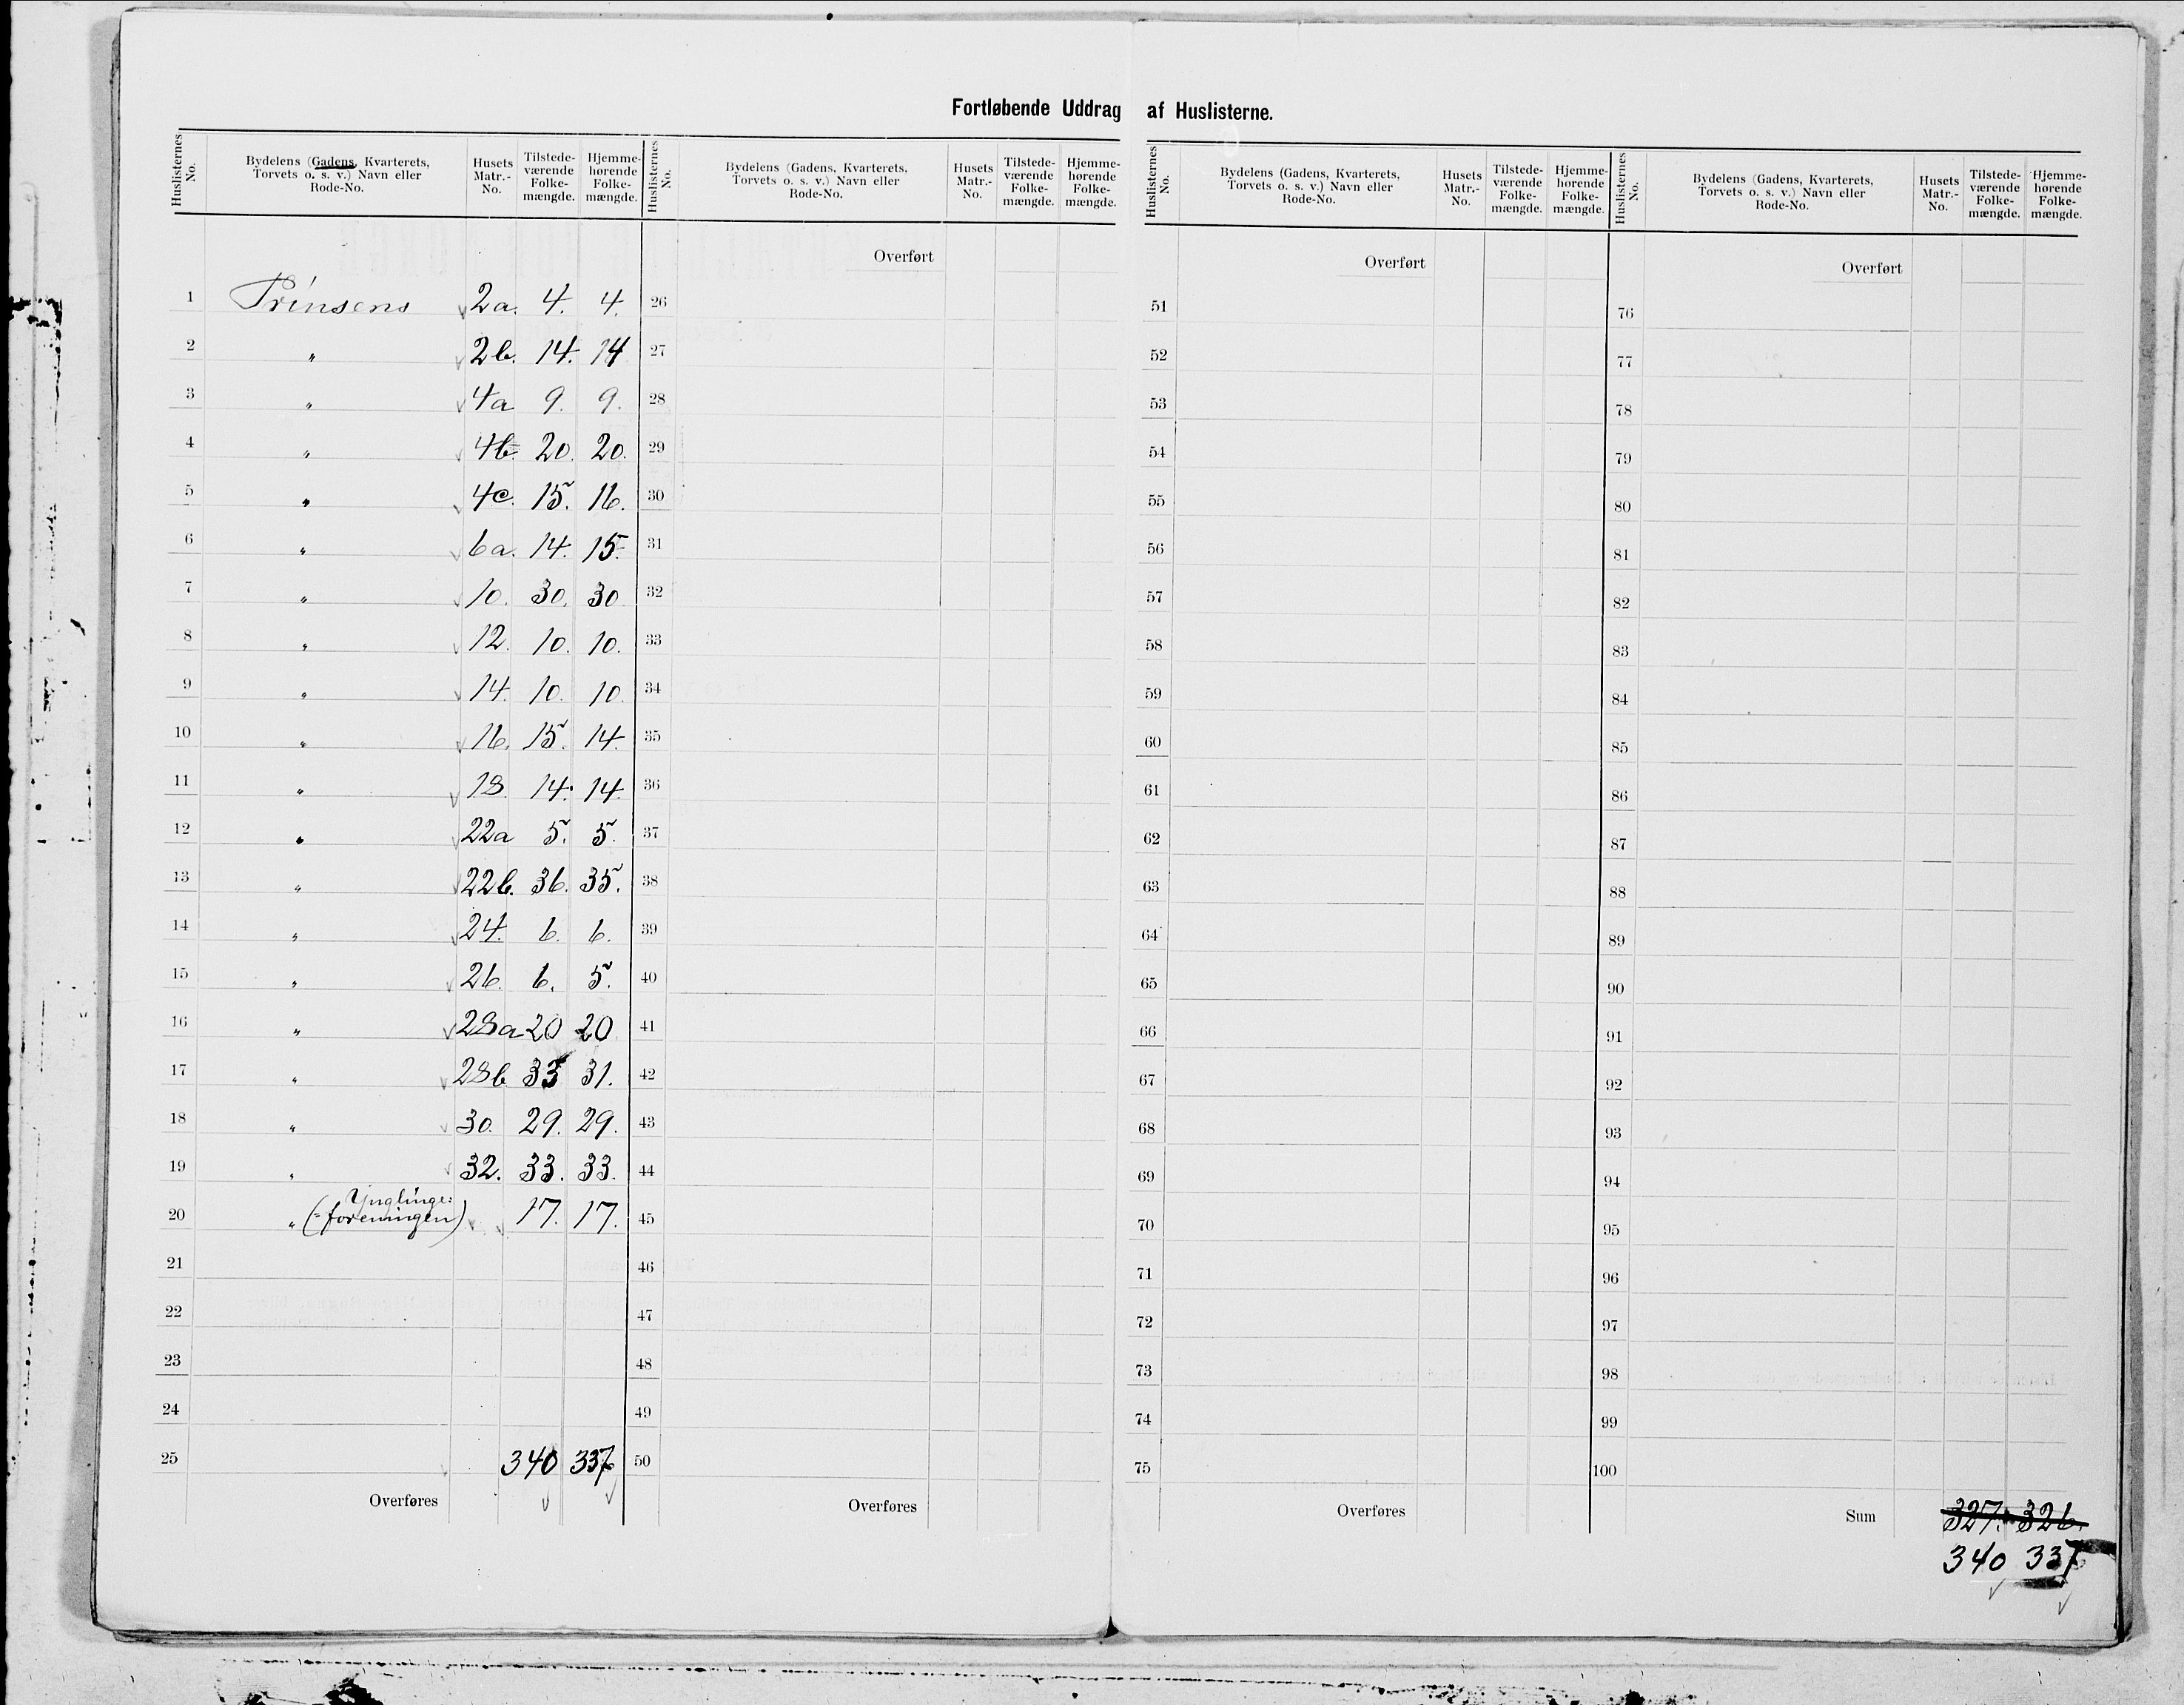 Fortløbende Uddrag af Huslisterne.
Huslisternes No. Bydelens (Gadens, Kvarterets, Torvets o. s. v.) Navn eller Rode-No. Husets Matr.-No. Tilstedeværende Folkemængde. Hjemmehørende Folkemængde.
1 Prinsens 2a. 4. 4.
2 " 2b. 14. 14
3 " 4a 9. 9.
4 " 4b. 20. 20.
5 " 4c. 15. 16.
6 " 6a. 14. 15.
7 " 10. 30. 30
8 " 12. 10. 10.
9 " 14. 10. 10.
10 " 16. 15. 14.
11 " 18. 14. 14.
12 " 22a 5. 5.
13 " 22b. 36. 35.
14 " 24. 6. 6.
15 " 26. 6. 5.
16 " 28a 20 20
17 " 28b 33 31.
18 " 30. 29. 29.
19 " 32. 33. 33.
20 " (Ynglinge=
=foreningen) " 17. 17.
21
22
23
24
25 340 337
Overføres
Huslisternes No. Bydelens (Gadens, Kvarterets, Torvets o. s. v.) Navn eller Rode-No. Husets Matr.-No. Tilstedeværende Folkemængde. Hjemmehørende Folkemængde.
Overført
26
27
28
29
30
31
32
33
34
35
36
37
38
39
40
41
42
43
44
45
46
47
48
49
50
Overføres
Huslisternes No. Bydelens (Gadens, Kvarterets, Torvets o. s. v.) Navn eller Rode-No. Husets Matr.-No. Tilstedeværende Folkemængde. Hjemmehørende Folkemængde.
Overført
51
52
53
54
55
56
57
58
59
60
61
62
63
64
65
66
67
68
69
70
71
72
73
74
75
Overføres
Huslisternes No. Bydelens (Gadens, Kvarterets, Torvets o. s. v.) Navn eller Rode-No. Husets Matr.-No. Tilstedeværende Folkemængde. Hjemmehørende Folkemængde.
Overført
76
77
78
79
80
81
82
83
84
85
86
87
88
89
90
91
92
93
94
95
96
97
98
99
100
Sum 327. 326.
340 337